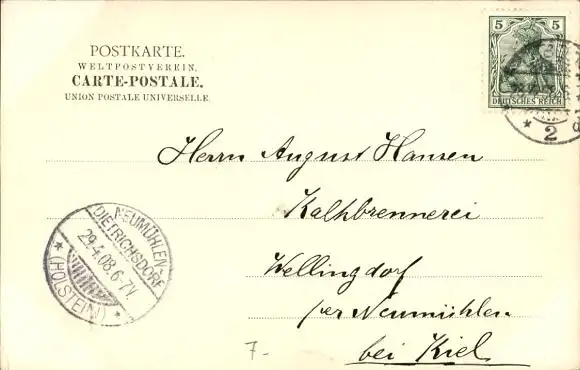 POSTKARTE.
WELTPOSTVEREIN.
CARTE-POSTALE.
UNION POSTALE UNIVERSELLE.
5 5
DEUTSCHES REICH
2
Herrn August Hansen
Kalkbrennerei
Wellingdorf
per Neumühlen
bei Kiel
NEUMÜHLEN
DIETRICHSDORF
29.4.08.6-7V.
* (HOLSTEIN) *
7-